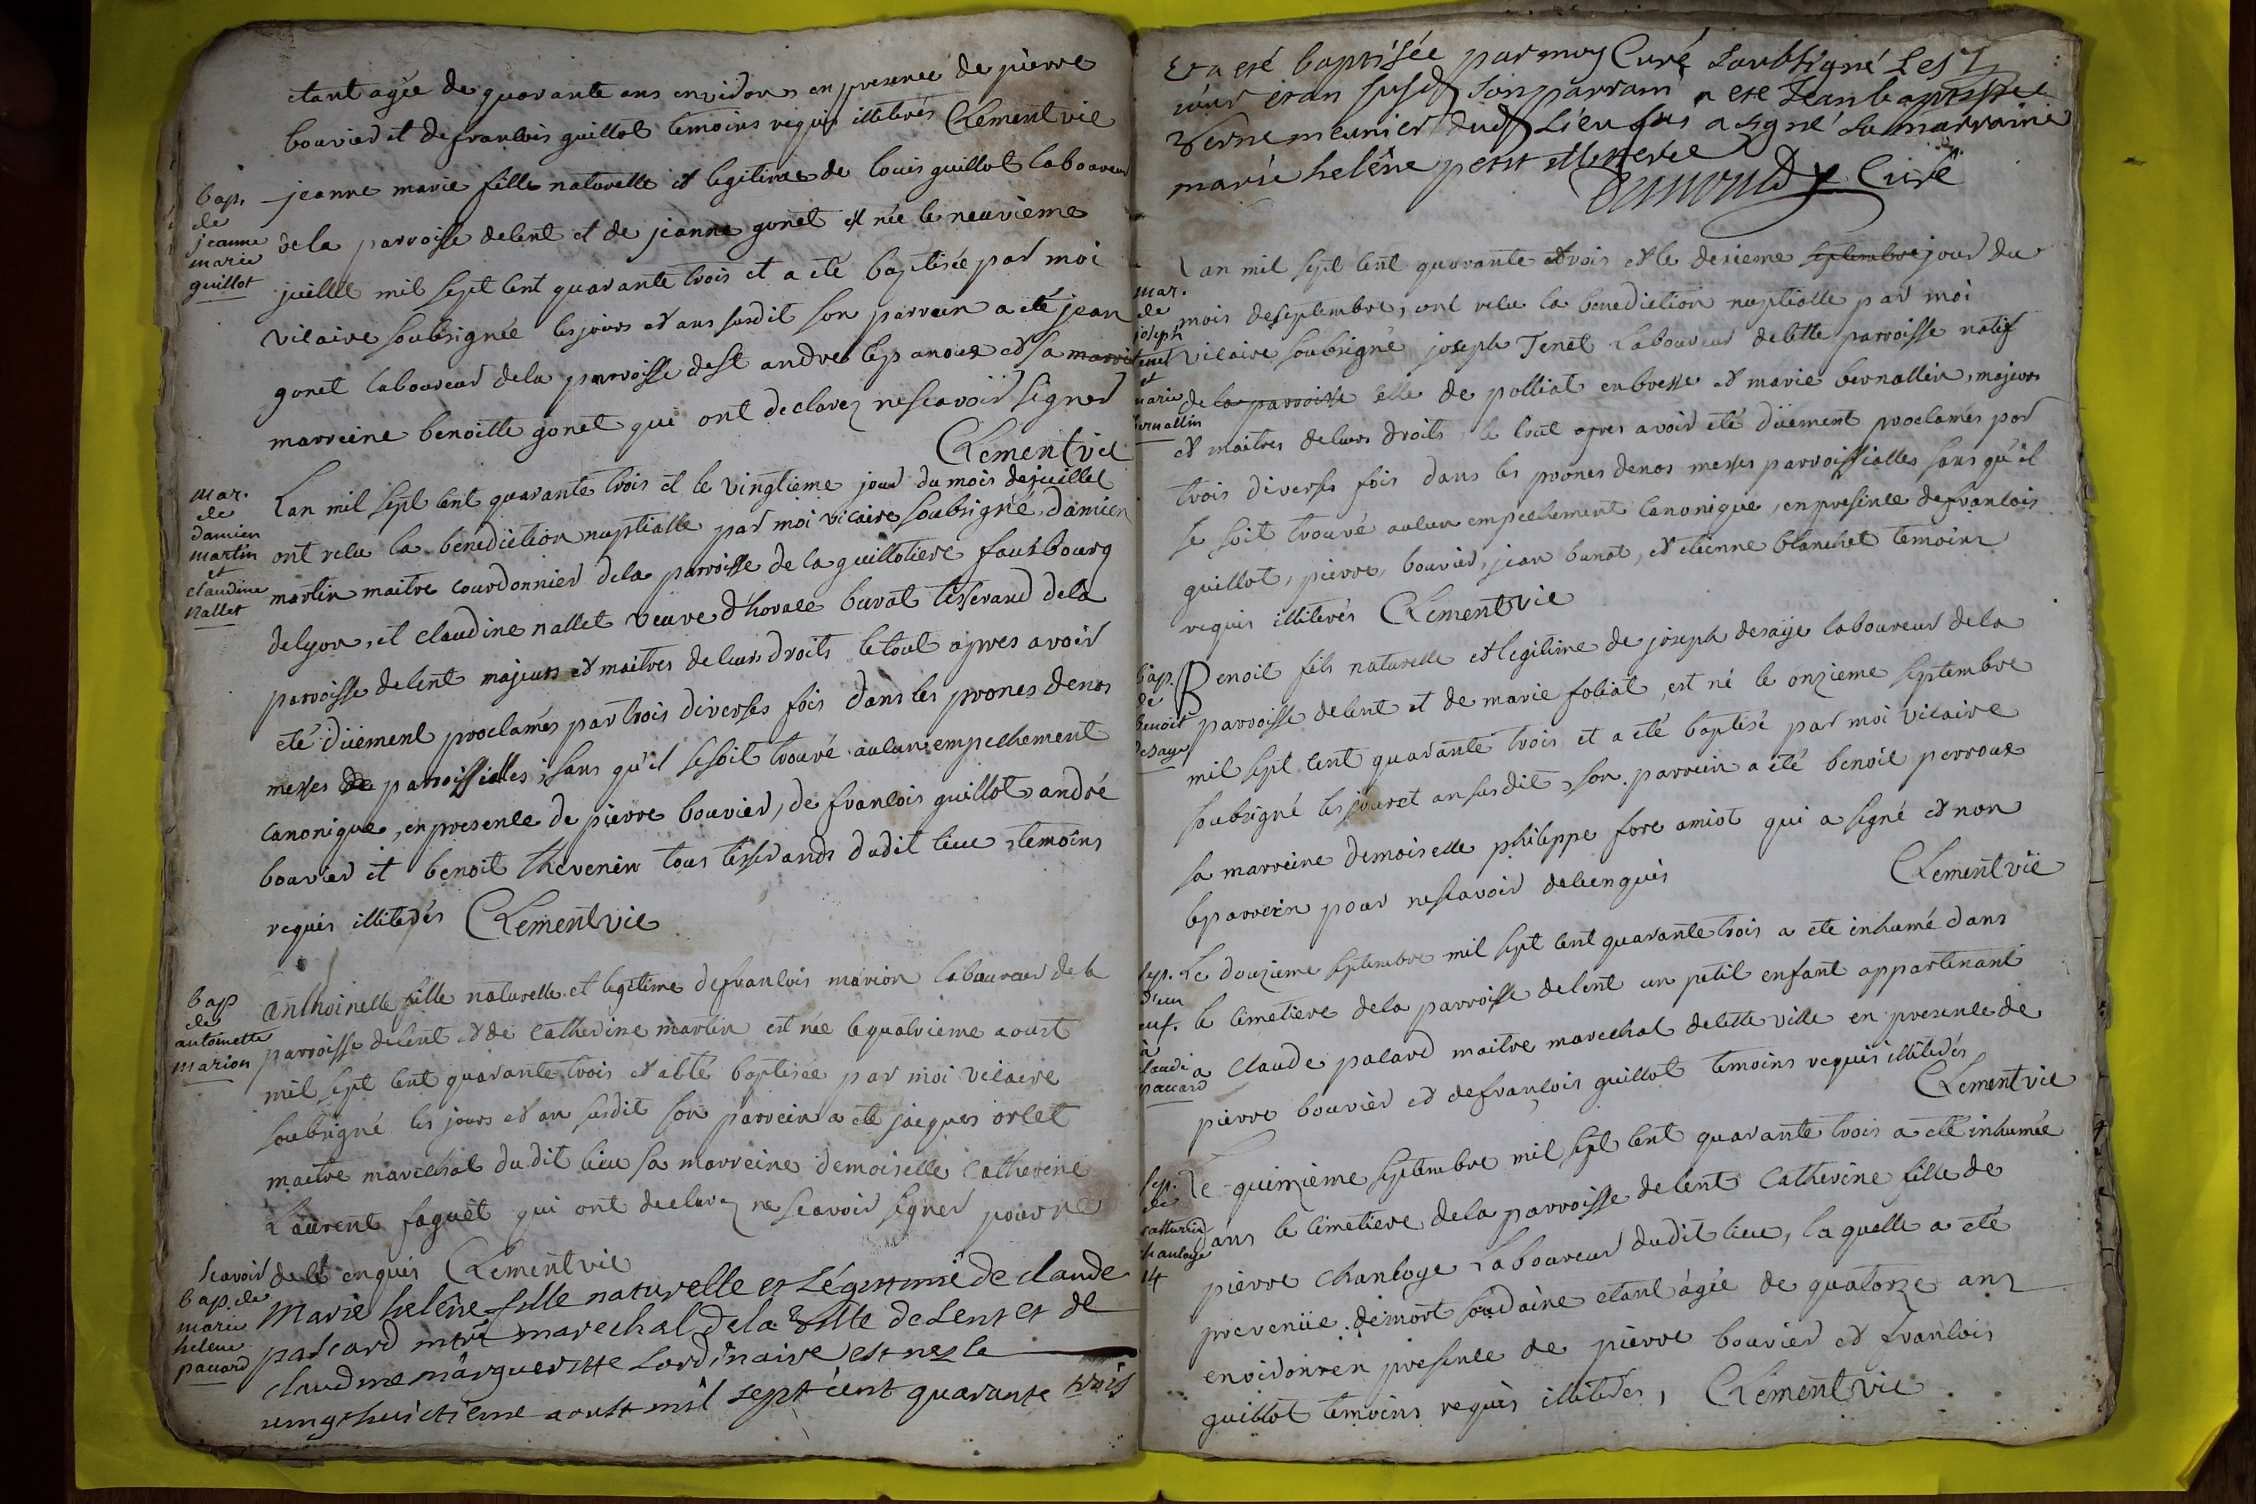 etant agée de quarante ans environs en presence de pierre
bouvier et de francois guillot temoins requis illiterés Clement vic
bap.
de
jeanne
marie
guillot
jeanne marie fille naturelle et legitime de louis guillot laboureur
de la parroisse de lent et de jeanne gonet est née le neuvieme
juillet mil sept cent quarante trois et a eté baptisée par moi
vicaire soubsignée les jours et ans susdit son parrein a eté jean
gonet laboureur de la parroisse de st andre le panoux et sa
marreine benoitte gonet qui ont declarez ne scavoir signer
Clement vic
mar.
de
damien
martin
et
claudine
nallet
Lan mil sept cent quarante trois et le vingtieme jour du mois de juillet
ont recu la benediction nuptialle par moi vicaire soubsigné, damien
martin maitre courdonnier de la parroisse de la guillotiere fauxbourg
de lyon, et claudine nallet veuve d'horace burat tisserand de la
parroisse de lent majeurs et maitres de leurs droits le tout apres avoir
eté düement proclamés par trois diverses fois dans les prones de nos
messes parroissialles, sans qu'il se soit trouvé aucun empechement
canonique, en presence de pierre bouvier, de francois guillot, andré
bouvier et benoit thevenin tous tisserands dudit lieu, temoins
requis illiterés Clement vic
bap
de
antoinette
marion
anthoinette fille naturelle et legitime de francois marion laboureur de la
parroisse de lent et de catherine martin est née le quatrieme aoust
mil sept cent quarante trois et a eté baptisée par moi vicaire
soubsigné les jours et an susdit son parrein a eté jacques orset
maitre marechal dudit lieu sa marreine demoiselle catherine
Laurent faguet qui ont declarez ne scavoir signer pour ne
scavoir de ce enquis Clement vic
bap. de
marie
helene
paccard
Marie helêne fille naturelle et Légittime de claude
pascard mtre marechal de la Ville de Lent et de
claudine margueritte Lordinaire est nez le
vingt huictieme aoust mil sept cent quarante trois
Et a eté baptisée par moy Curé soubsigné Les
jour et an susd son parrain a ete Jean baptiste
Verne meunier dud Lieu qui a signé sa marraine
marie helêne petit
Curé
Lan mil sept cent quarante trois et le dexieme septembre jour du
mar.
de
joseph
tenet
et
marie
bernallin
mois de septembre, ont recu la benediction nuptialle par moi
vicaire soubsigné joseph Tenet Laboureur de cette parroisse natif
de la parroisse celle de polliat en bresse et marie bernallin, majeurs
et maitres de leurs droits, le tout apres avoir eté düement proclamés par
trois diverses fois dans les prones de nos messes parroissialles sans qu'il
se soit trouvé aucun empechement canonique, en presence de francois
guillot, pierre bouvier, jean bunat, et etienne blanchet temoins
requis illiterés Clement vic
bap.
de
benoit
desaye
Benoit fils naturelle et legitime de joseph desaÿe laboureur de la
parroisse de lent et de marie foliat, est né le onzieme septembre
mil sept cent quarante trois et a eté baptisé par moi vicaire
soubsigné les jour et an susdit, son parrein a eté benoit perroux
sa marreine demoiselle philippe fore amiot qui a signé et non
le parrein pour ne scavoir de ce enquis Clement vic
sep.
d'un
enf.
à
claude
paccard
Le douzieme septembre mil sept cent quarante trois a eté inhumé dans
le cimetiere de la parroisse de lent un petit enfant appartenant
a claude pacard maitre marechal de cette ville en presence de
pierre bouvier et de francois guillot temoins requis illiterés
Clement vic
sep.
de
catherine
chanloye
14
Le quinzieme septembre mil sept cent quarante trois a eté inhumée
dans le cimetiere de la parroisse de lent Catherine fille de
pierre chanloye Laboureur dudit lieu, laquelle a eté
prevenüe de mort soudaine etant agée de quatorze ans
environ en presence de pierre bouvier et francois
guillot temoins requis illiterés, Clement vic